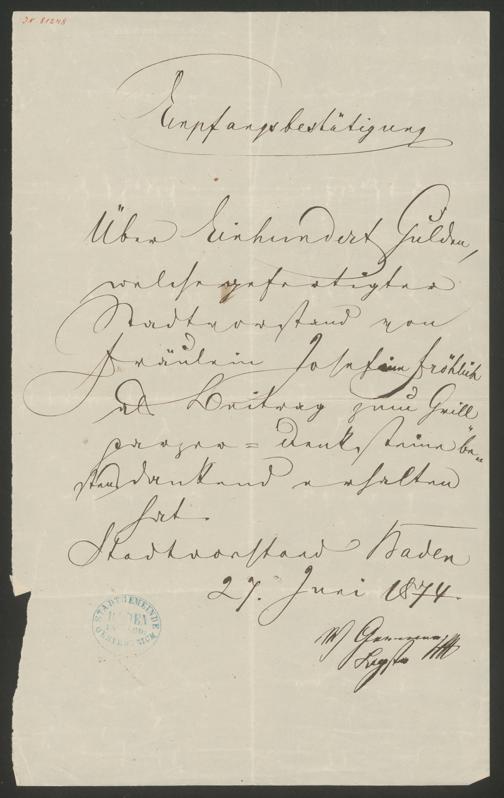 IN 81248
Empfangsbestätigung
Über Einhundert Gulden,
welche gefertigter
Stadtvorstand von
Fräulein Josefine Fröhlich
als Beitrag zum Grill
parzer = Denksteine be-
stens dankend erhalten
hat.
Stadtvorstand Baden
27. Juni 1874.
STADTGEMEINDE
BADEN